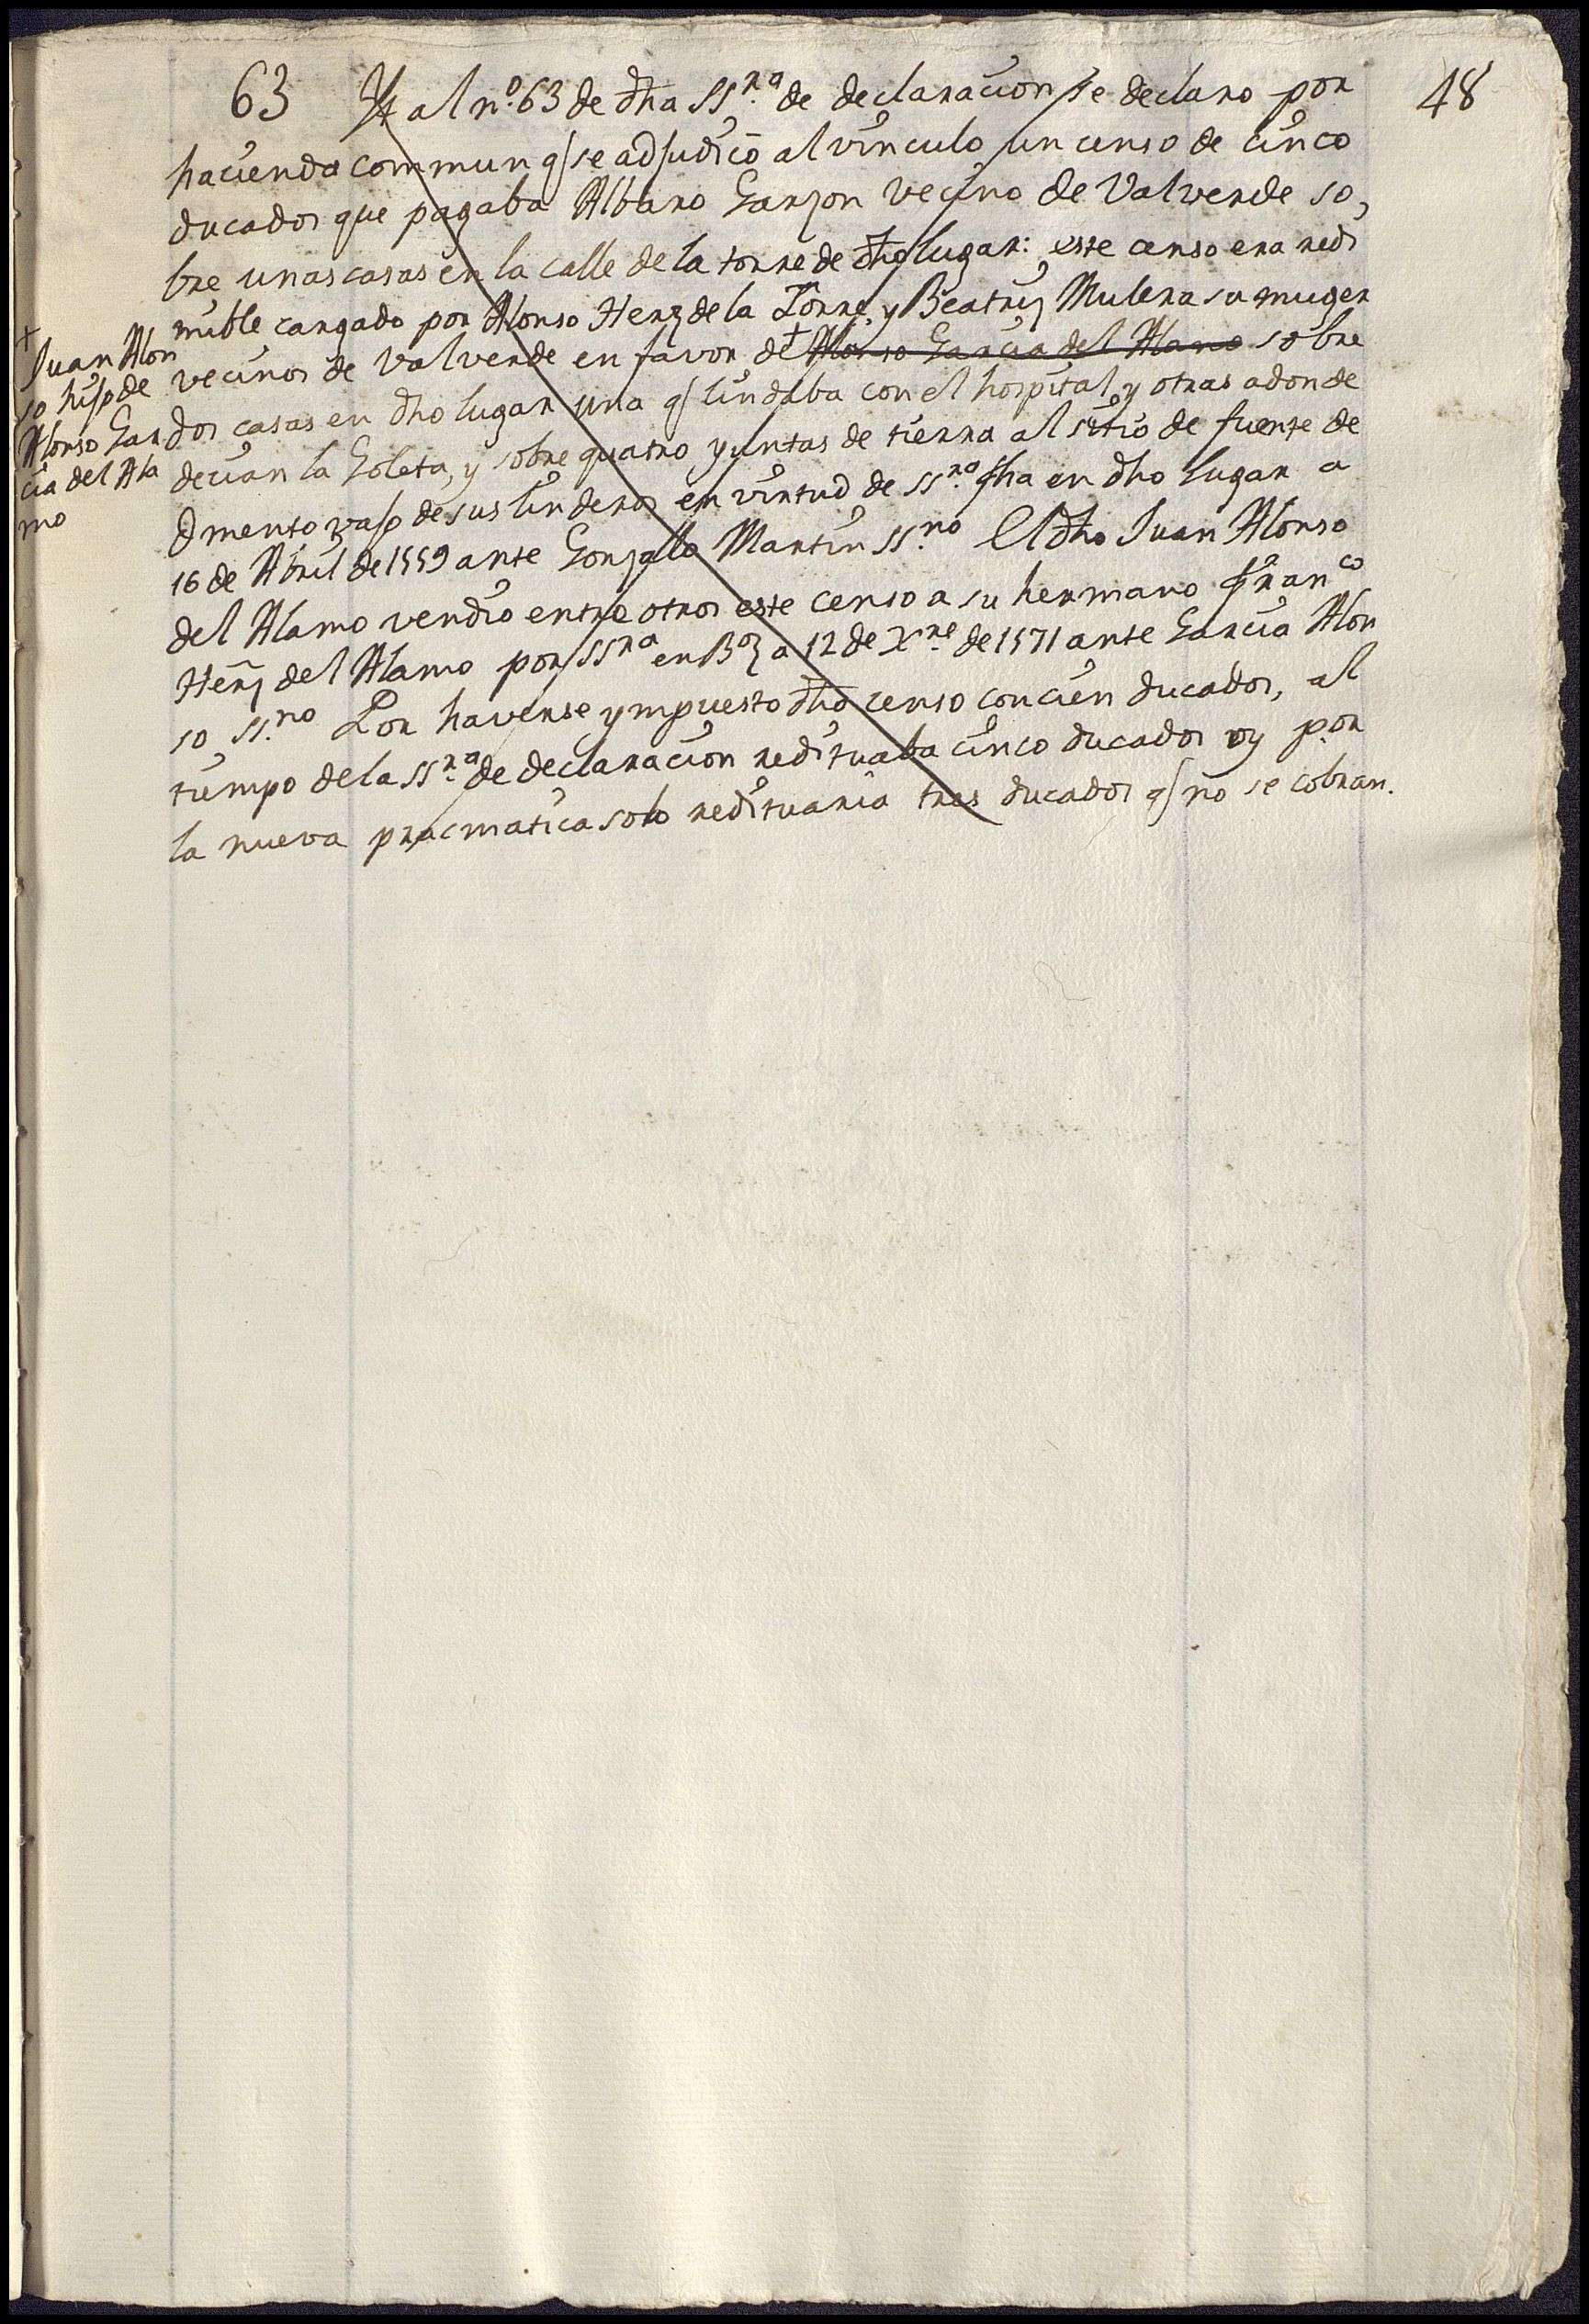 48
63 Yt al nº. 63 de dha ssra. de declaracion se declaro por
hacienda commun q se adjudicó al vinculo un censo de cinco
ducados que pagaba Albaro Garzon vecino de Valverde so,
bre unas casas en la calle de la torre de dho lugar: este censo era redi
mible cargado por Alonso Herz de la Torre, y Beatriz Mulera su muger
vecinos de Valverde en favor de + Alonso Garcia del Alamo sobre
dos casas en dho lugar una q lindaba con el hospital, y otras adonde
decian la Goleta, y sobre quatro yuntas de tierra al sitio de fuente de
vajo de sus linderos en virtud de ssra. fha en dho lugar a
16 de Abril de 1559 ante Gonzalo Martin ssno. El dho Juan Alonso
del Alamo vendio entre otros este censo a su hermano Franco
Herz del Alamo por ssra en Boz a 12 de Xre. de 1571 ante Garcia Alon
so ss.no Por haverse ympuesto dho censo con cien ducados, al
tiempo de la ssra. de declaracion redituaba cinco ducados oy por
la nueva pracmatica solo redituaria tres ducados q no se cobran.
+
Juan Alon
so hijo de
Alonso Gar
cia del Ala
mo